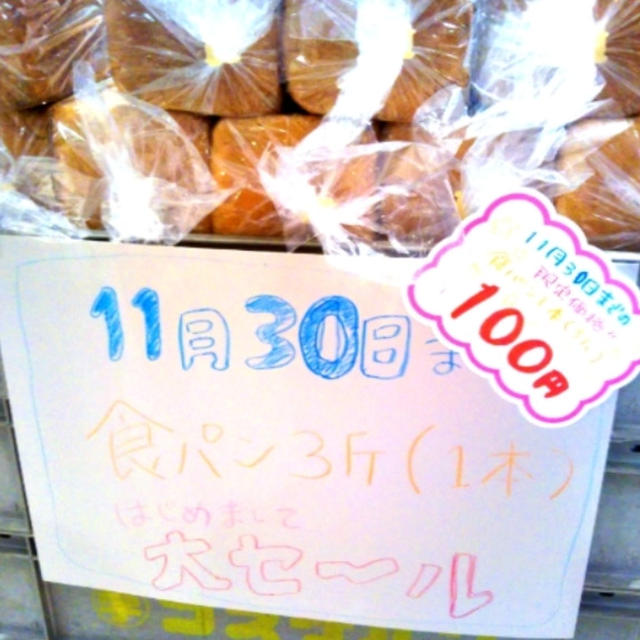 11月30日ま
食パン3斤(1本)
はじめまして
大セール
11月30日までの
限定価格!!
食パン1本(3斤)
100円